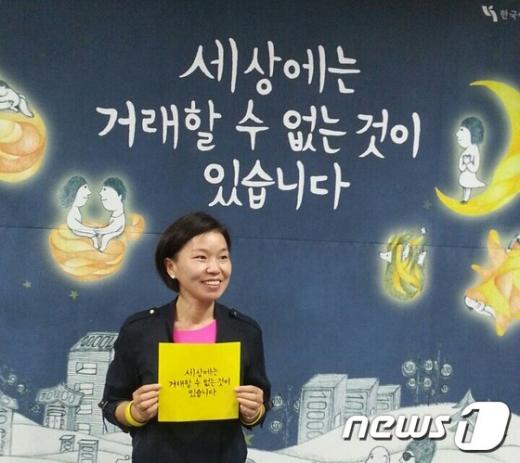 한국
세상에는
거래할 수 없는 것이
있습니다
세상에는
거래할 수 없는 것이
있습니다
news1